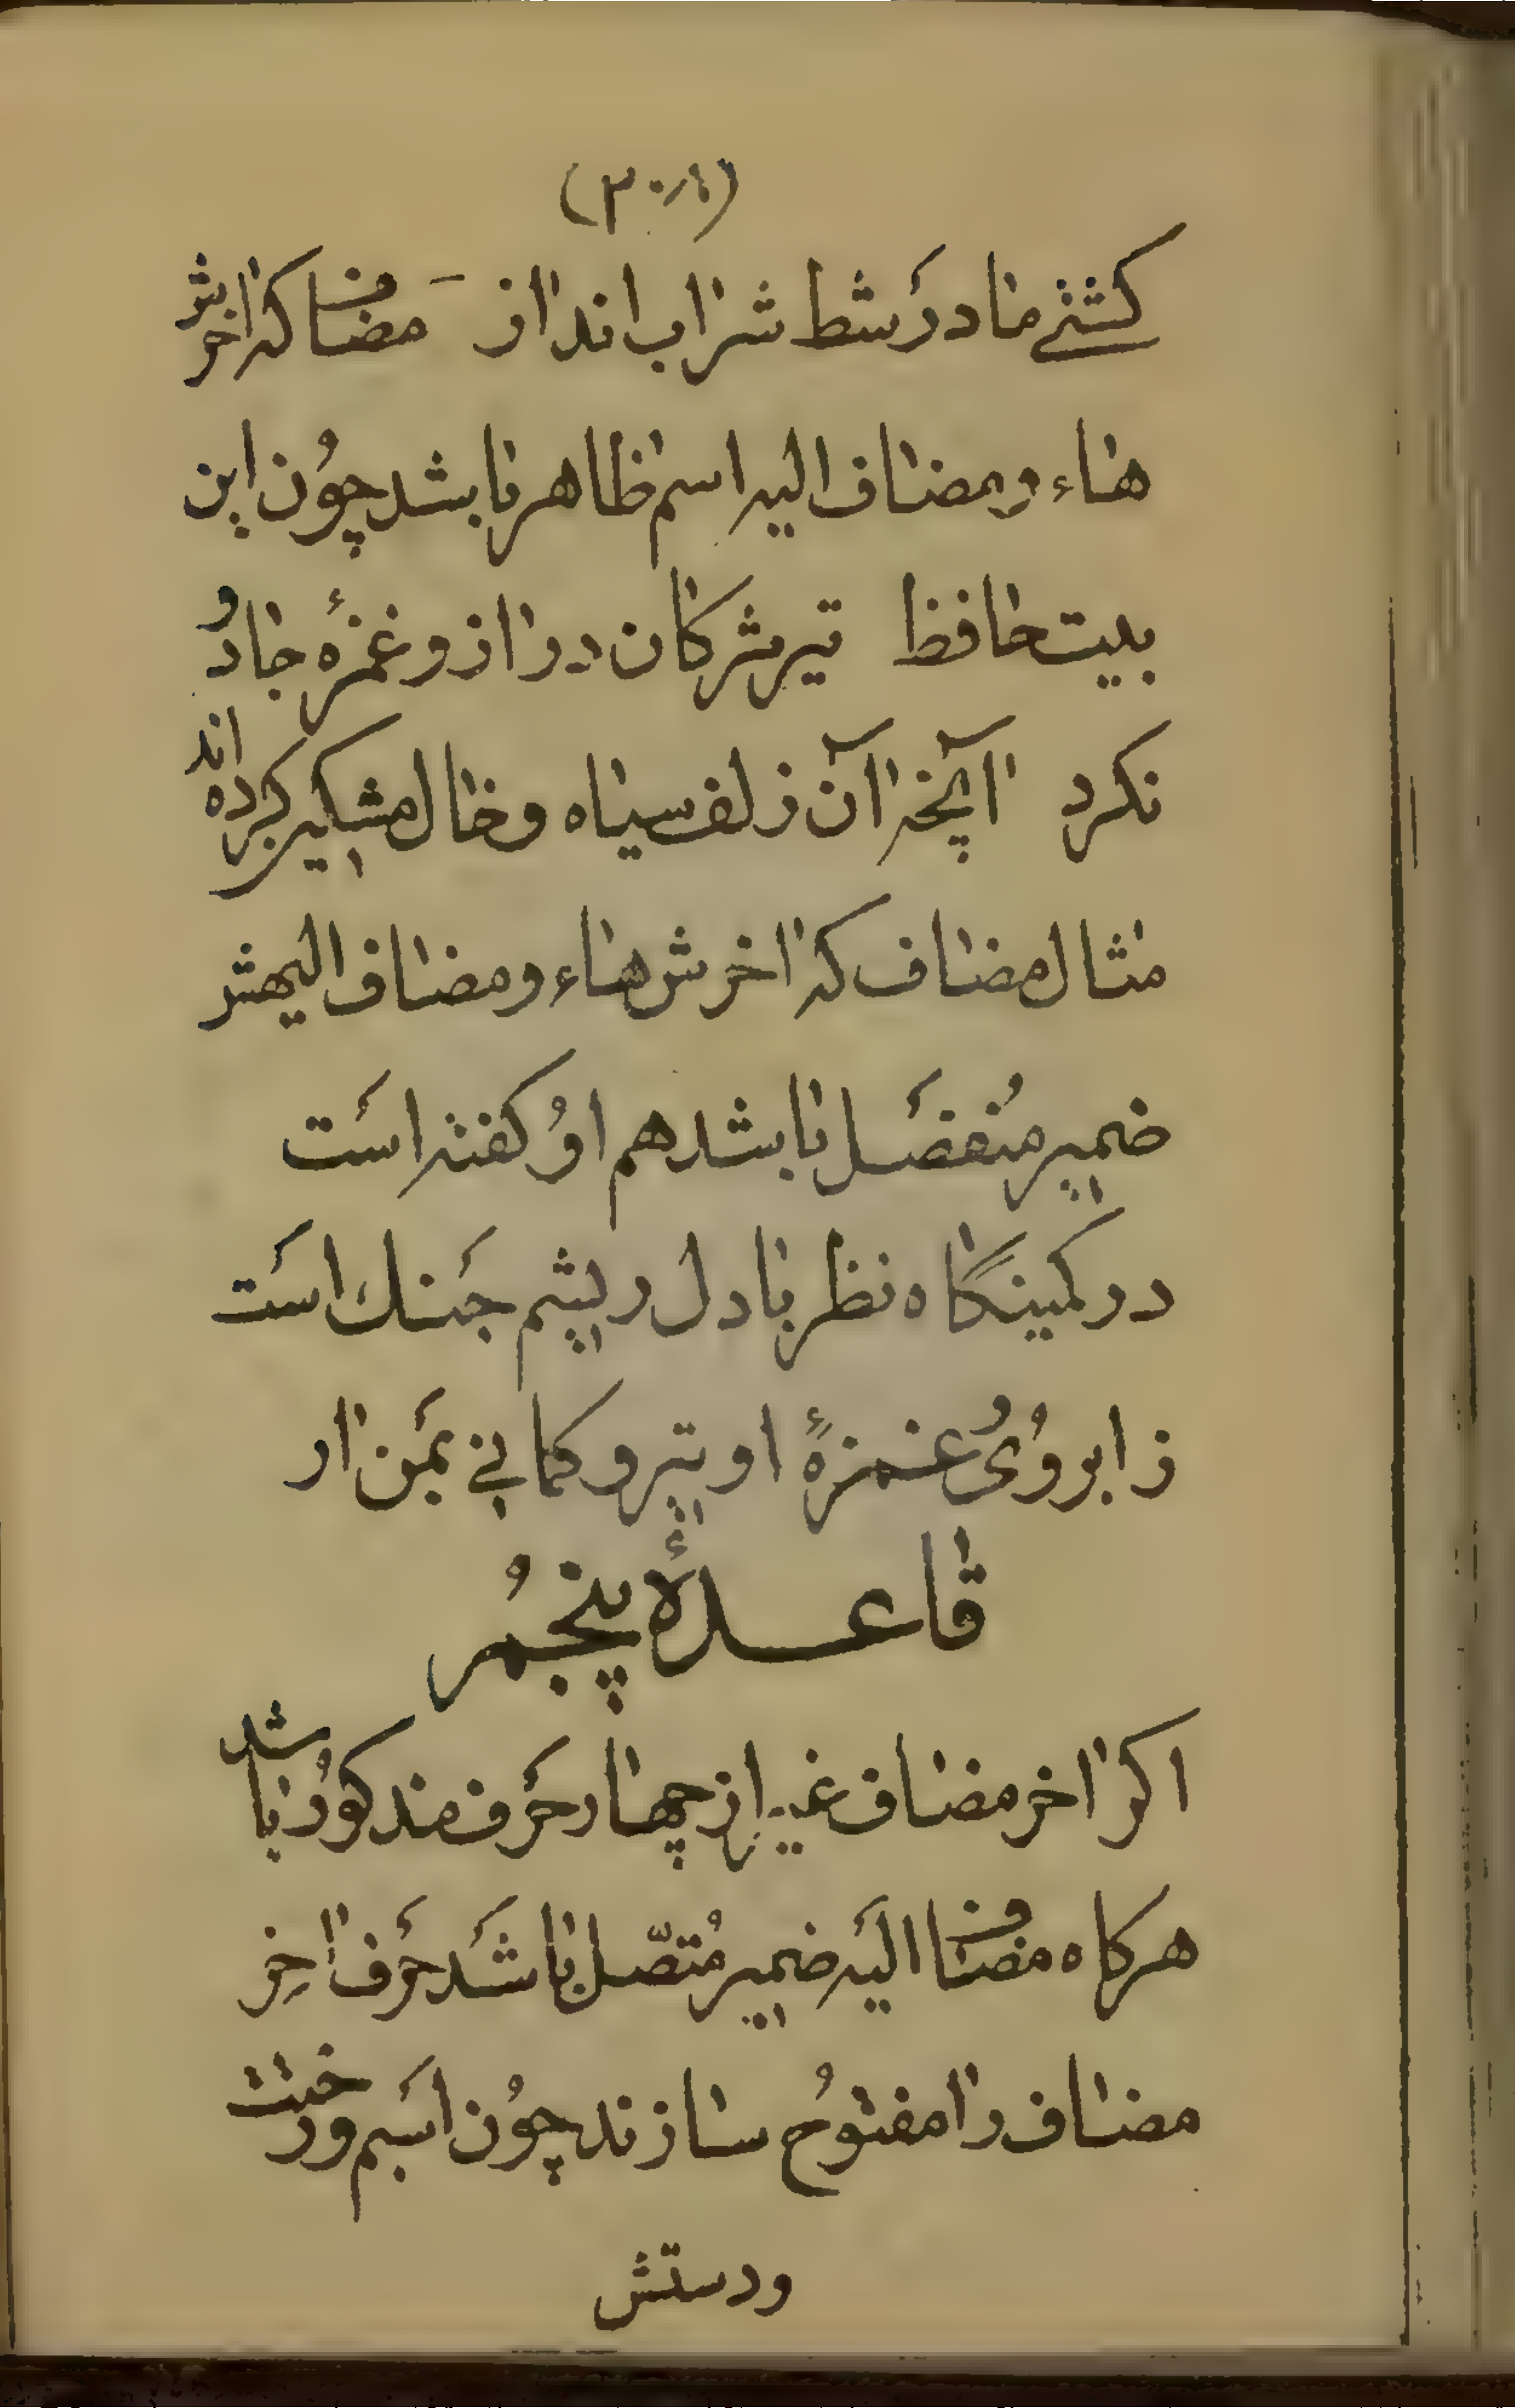 کشتیٔ ما در شط شراب انداز مضاف که اخرش
هاء و مضاف الیه اسم ظاهر باشد چُون این
بیت حافظ تیر مژکان دراز و غمزهٔ جادُو
نکرد آنچه آن زلف سیاه و خال مشکین کرده اند
مثال مضاف که اخرش هاء و مضاف الیهش
ضمیر مُنفصَل باشد هم اوُ کفته اسَت
در کمینگاه نظر با دل ریشم جَنك اسَت
ز ابروُیُ غمزهٔ او تیر و کمانی بمَن ار
قاعدهٔ پنجُم
اکر اخر مضاف غیر از چهار حَرف مذکوُر باشد
هرکاه مضاف الیَه ضمیر مُتصّل باشَد حَرف اخِر
مضاف را مفتوُح سازند چوُن اسَبم و رختت
و دستش